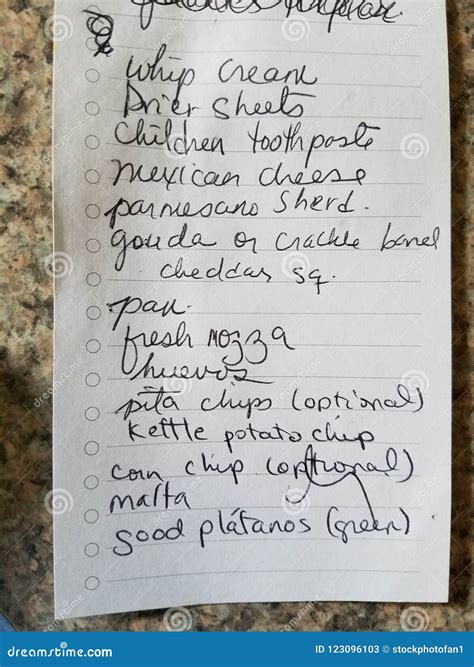 whip cream
Drier sheets
children toothpaste
mexican cheese
parmesano Sherd.
gouda or crackle barrel
cheddar sq.
pan.
fresh mozza
huevos
pita chips (optional)
kettle potato chip
corn chip (optional)
malta
good plátanos (green)
dreamstime.com
ID 123096103 © stockphotofan1